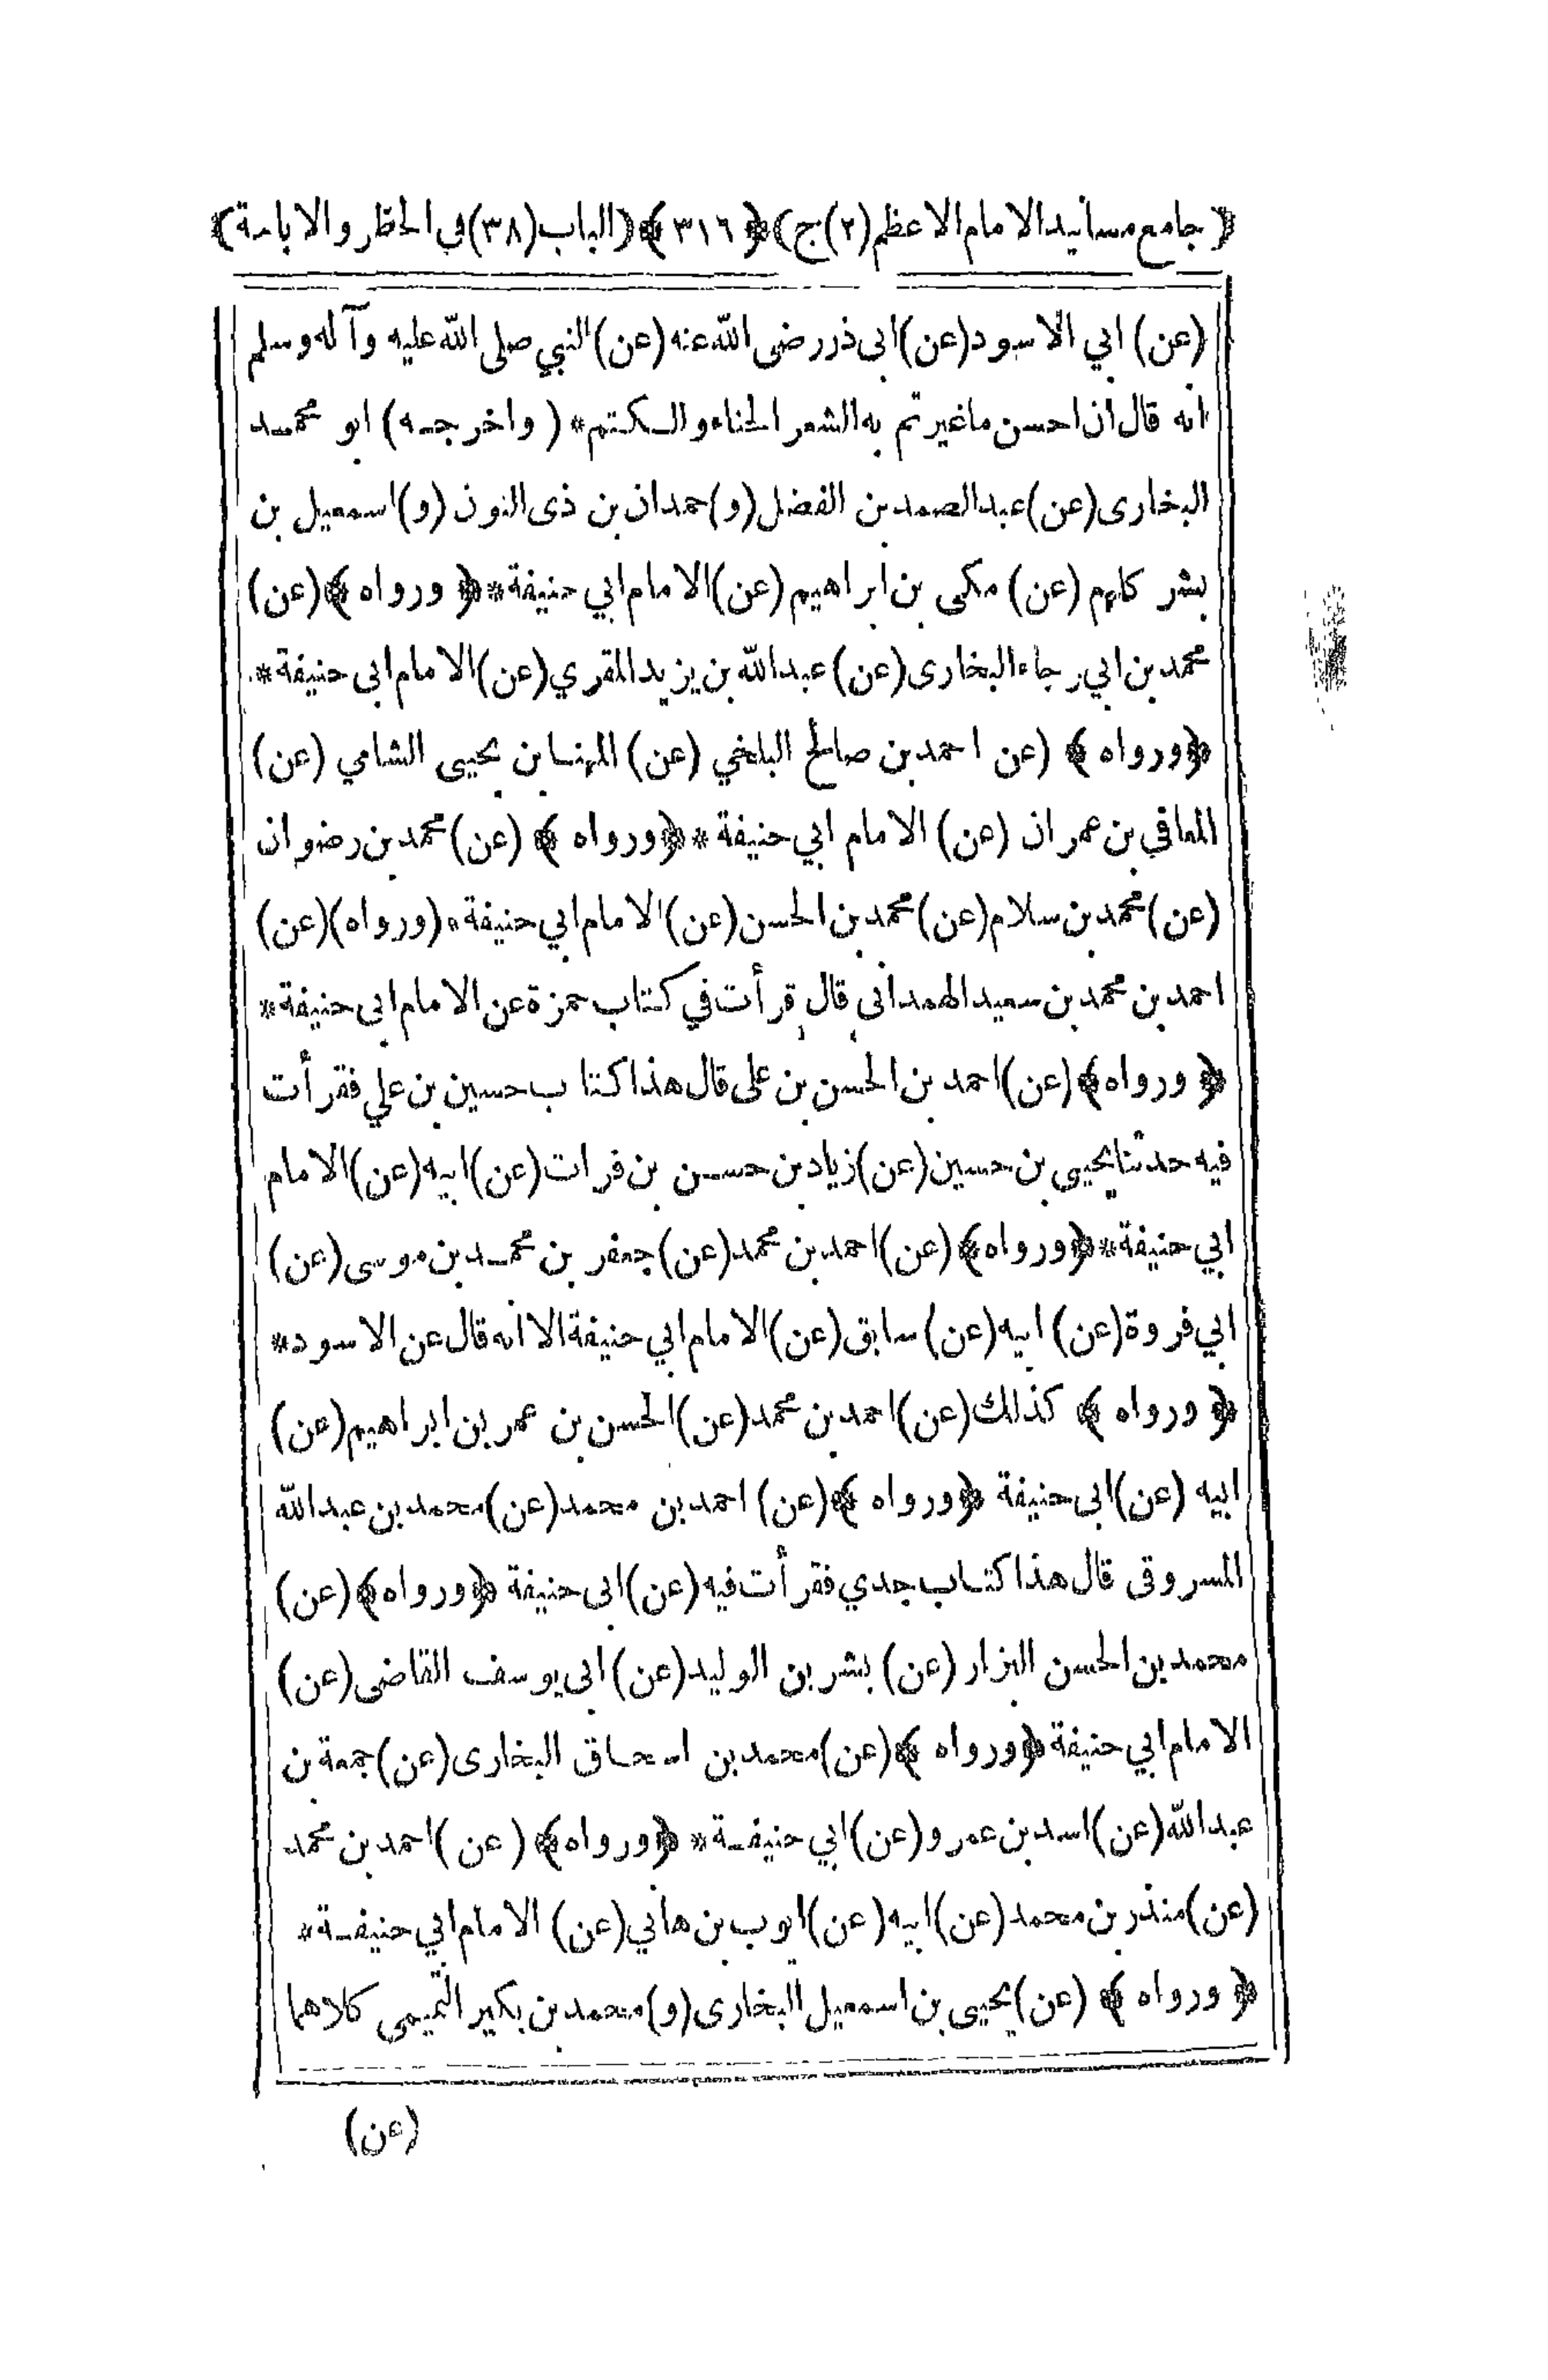 ﴿جامع مسانيد الامام الاعظم (٢) ج﴾ ﴿٣١٦﴾ ﴿الباب (٣٨) في الحظر والاباحة﴾
(عن) ابي الاسود (عن) ابى ذر رضى الله عنه (عن) النبي صلى الله عليه وآله وسلم
انه قال ان احسن ما غيرتم به الشعر الحناء والكتم * (واخرجه) ابو محمد
البخارى (عن) عبد الصمد بن الفضل (و) حمدان بن ذى النون (و) اسمعيل بن
بشر كلهم (عن) مكى بن ابراهيم (عن) الامام ابي حنيفة * ﴿ورواه﴾ (عن)
محمد بن ابي رجاء البخارى (عن) عبد الله بن يزيد المقري (عن) الامام ابى حنيفة *
﴿ورواه﴾ (عن احمد بن صالح البلخي (عن) المهنا بن يحيى الشامي (عن)
المعافي بن عمران (عن) الامام ابي حنيفة * ﴿ورواه﴾ (عن) محمد بن رضوان
(عن) محمد بن سلام (عن) محمد بن الحسن (عن) الامام ابي حنيفة * (ورواه) (عن)
احمد بن محمد بن سعيد الهمدانى قال قرأت في كتاب حمزة عن الامام ابى حنيفة *
﴿ورواه﴾ (عن) احمد بن الحسن بن على قال هذا كتاب حسين بن علي فقرأت
فيه حدثنا يحيى بن حسين (عن) زياد بن حسن بن فرات (عن) ابيه (عن) الامام
ابي حنيفة * ﴿ورواه﴾ (عن) احمد بن محمد (عن) جعفر بن محمد بن موسى (عن)
ابي فروة (عن) ابيه (عن) سابق (عن) الامام ابي حنيفة الا انه قال عن الاسود *
﴿ورواه﴾ كذلك (عن) احمد بن محمد (عن) الحسن بن عمر بن ابراهيم (عن)
ابيه (عن) ابى حنيفة ﴿ورواه﴾ (عن) احمد بن محمد (عن) محمد بن عبد الله
المسروقى قال هذا كتاب جدي فقرأت فيه (عن) ابى حنيفة ﴿ورواه﴾ (عن)
محمد بن الحسن البزار (عن) بشر بن الوليد (عن) ابى يوسف القاضى (عن)
الامام ابي حنيفة ﴿ورواه﴾ (عن) محمد بن اسحاق البخارى (عن) جمعة بن
عبد الله (عن) اسد بن عمرو (عن) ابي حنيفة * ﴿ورواه﴾ (عن) احمد بن محمد
(عن) منذر بن محمد (عن) ابيه (عن) ايوب بن هاني (عن) الامام ابي حنيفة *
﴿ورواه﴾ (عن) يحيى بن اسمعيل البخارى (و) محمد بن بكير التميمى كلاهما
(عن)